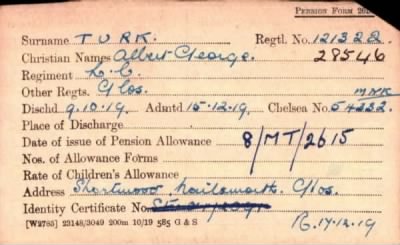 PENSION FORM 20
Surname TURK. Regtl. No. 121322
Christian Names Albert George. 28546
Regiment L.C.
Other Regts. Glos.
Dischd 9.10.19. Admtd 15.12.19. Chelsea No. 54332.
Place of Discharge
Date of issue of Pension Allowance 8/MT/2615
Nos. of Allowance Forms
Rate of Children's Allowance
Address Shortwood Nailsworth. Glos.
Identity Certificate No.
[W2785] 23148/3049 200m 10/19 585 G & S R.17.12.19